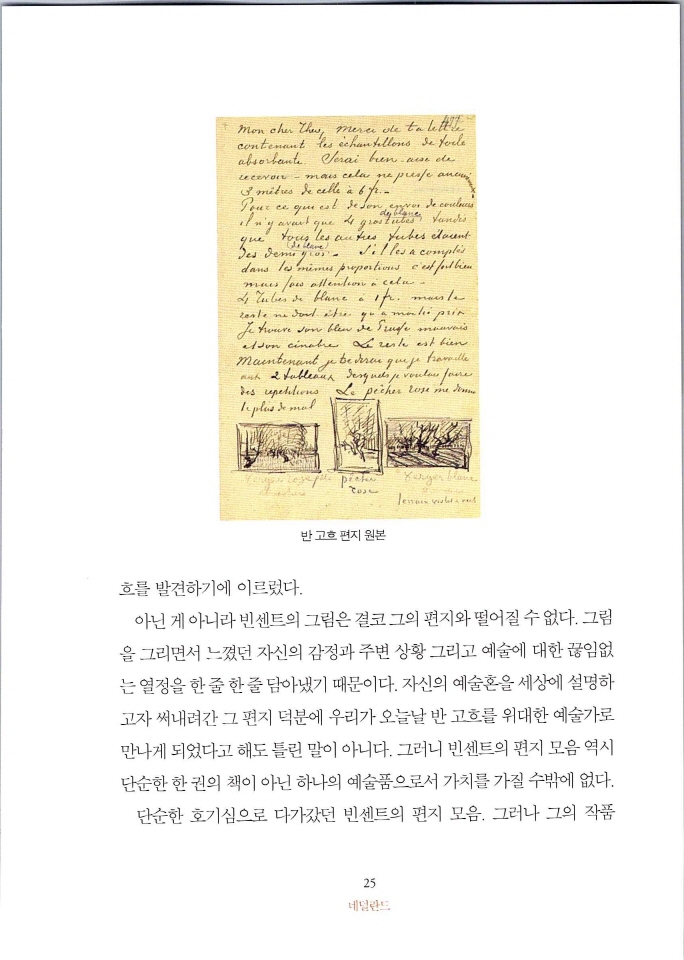 Mon cher Theo, Merci de ta lettre
contenant les échantillons de toile
absorbante. Serai bien aise de
recevoir – mais cela ne presse aucunem.
3 mètres de celle à 6 fr. –
Pour ce qui est de son envoi de couleurs
il n'y avait que 4 gros tubes du blanc tandis
que tous les autres tubes étaient
des demi gros (de blanc) – S'il les a comptés
dans les mêmes proportions c'est fort bien
mais fais attention à cela –
4 Tubes de blanc à 1 fr. mais le
reste ne doit être qu'a moitié prix
Je trouve son bleu de Prusse mauvais
et son cinabre Le reste est bien
Maintenant je te dirai que je travaille
aux 2 tableaux desquels je voulais faire
des repetitions Le pêcher rose me donne
le plus de mal
verger rose pêcher verger blanc
rose
terrain violet & vert
반 고흐 편지 원본
흐를 발견하기에 이르렀다.
아닌 게 아니라 빈센트의 그림은 결코 그의 편지와 떨어질 수 없다. 그림
을 그리면서 느꼈던 자신의 감정과 주변 상황 그리고 예술에 대한 끊임없
는 열정을 한 줄 한 줄 담아냈기 때문이다. 자신의 예술혼을 세상에 설명하
고자 써내려간 그 편지 덕분에 우리가 오늘날 반 고흐를 위대한 예술가로
만나게 되었다고 해도 틀린 말이 아니다. 그러니 빈센트의 편지 모음 역시
단순한 한 권의 책이 아닌 하나의 예술품으로서 가치를 가질 수밖에 없다.
단순한 호기심으로 다가갔던 빈센트의 편지 모음. 그러나 그의 작품
25
네덜란드